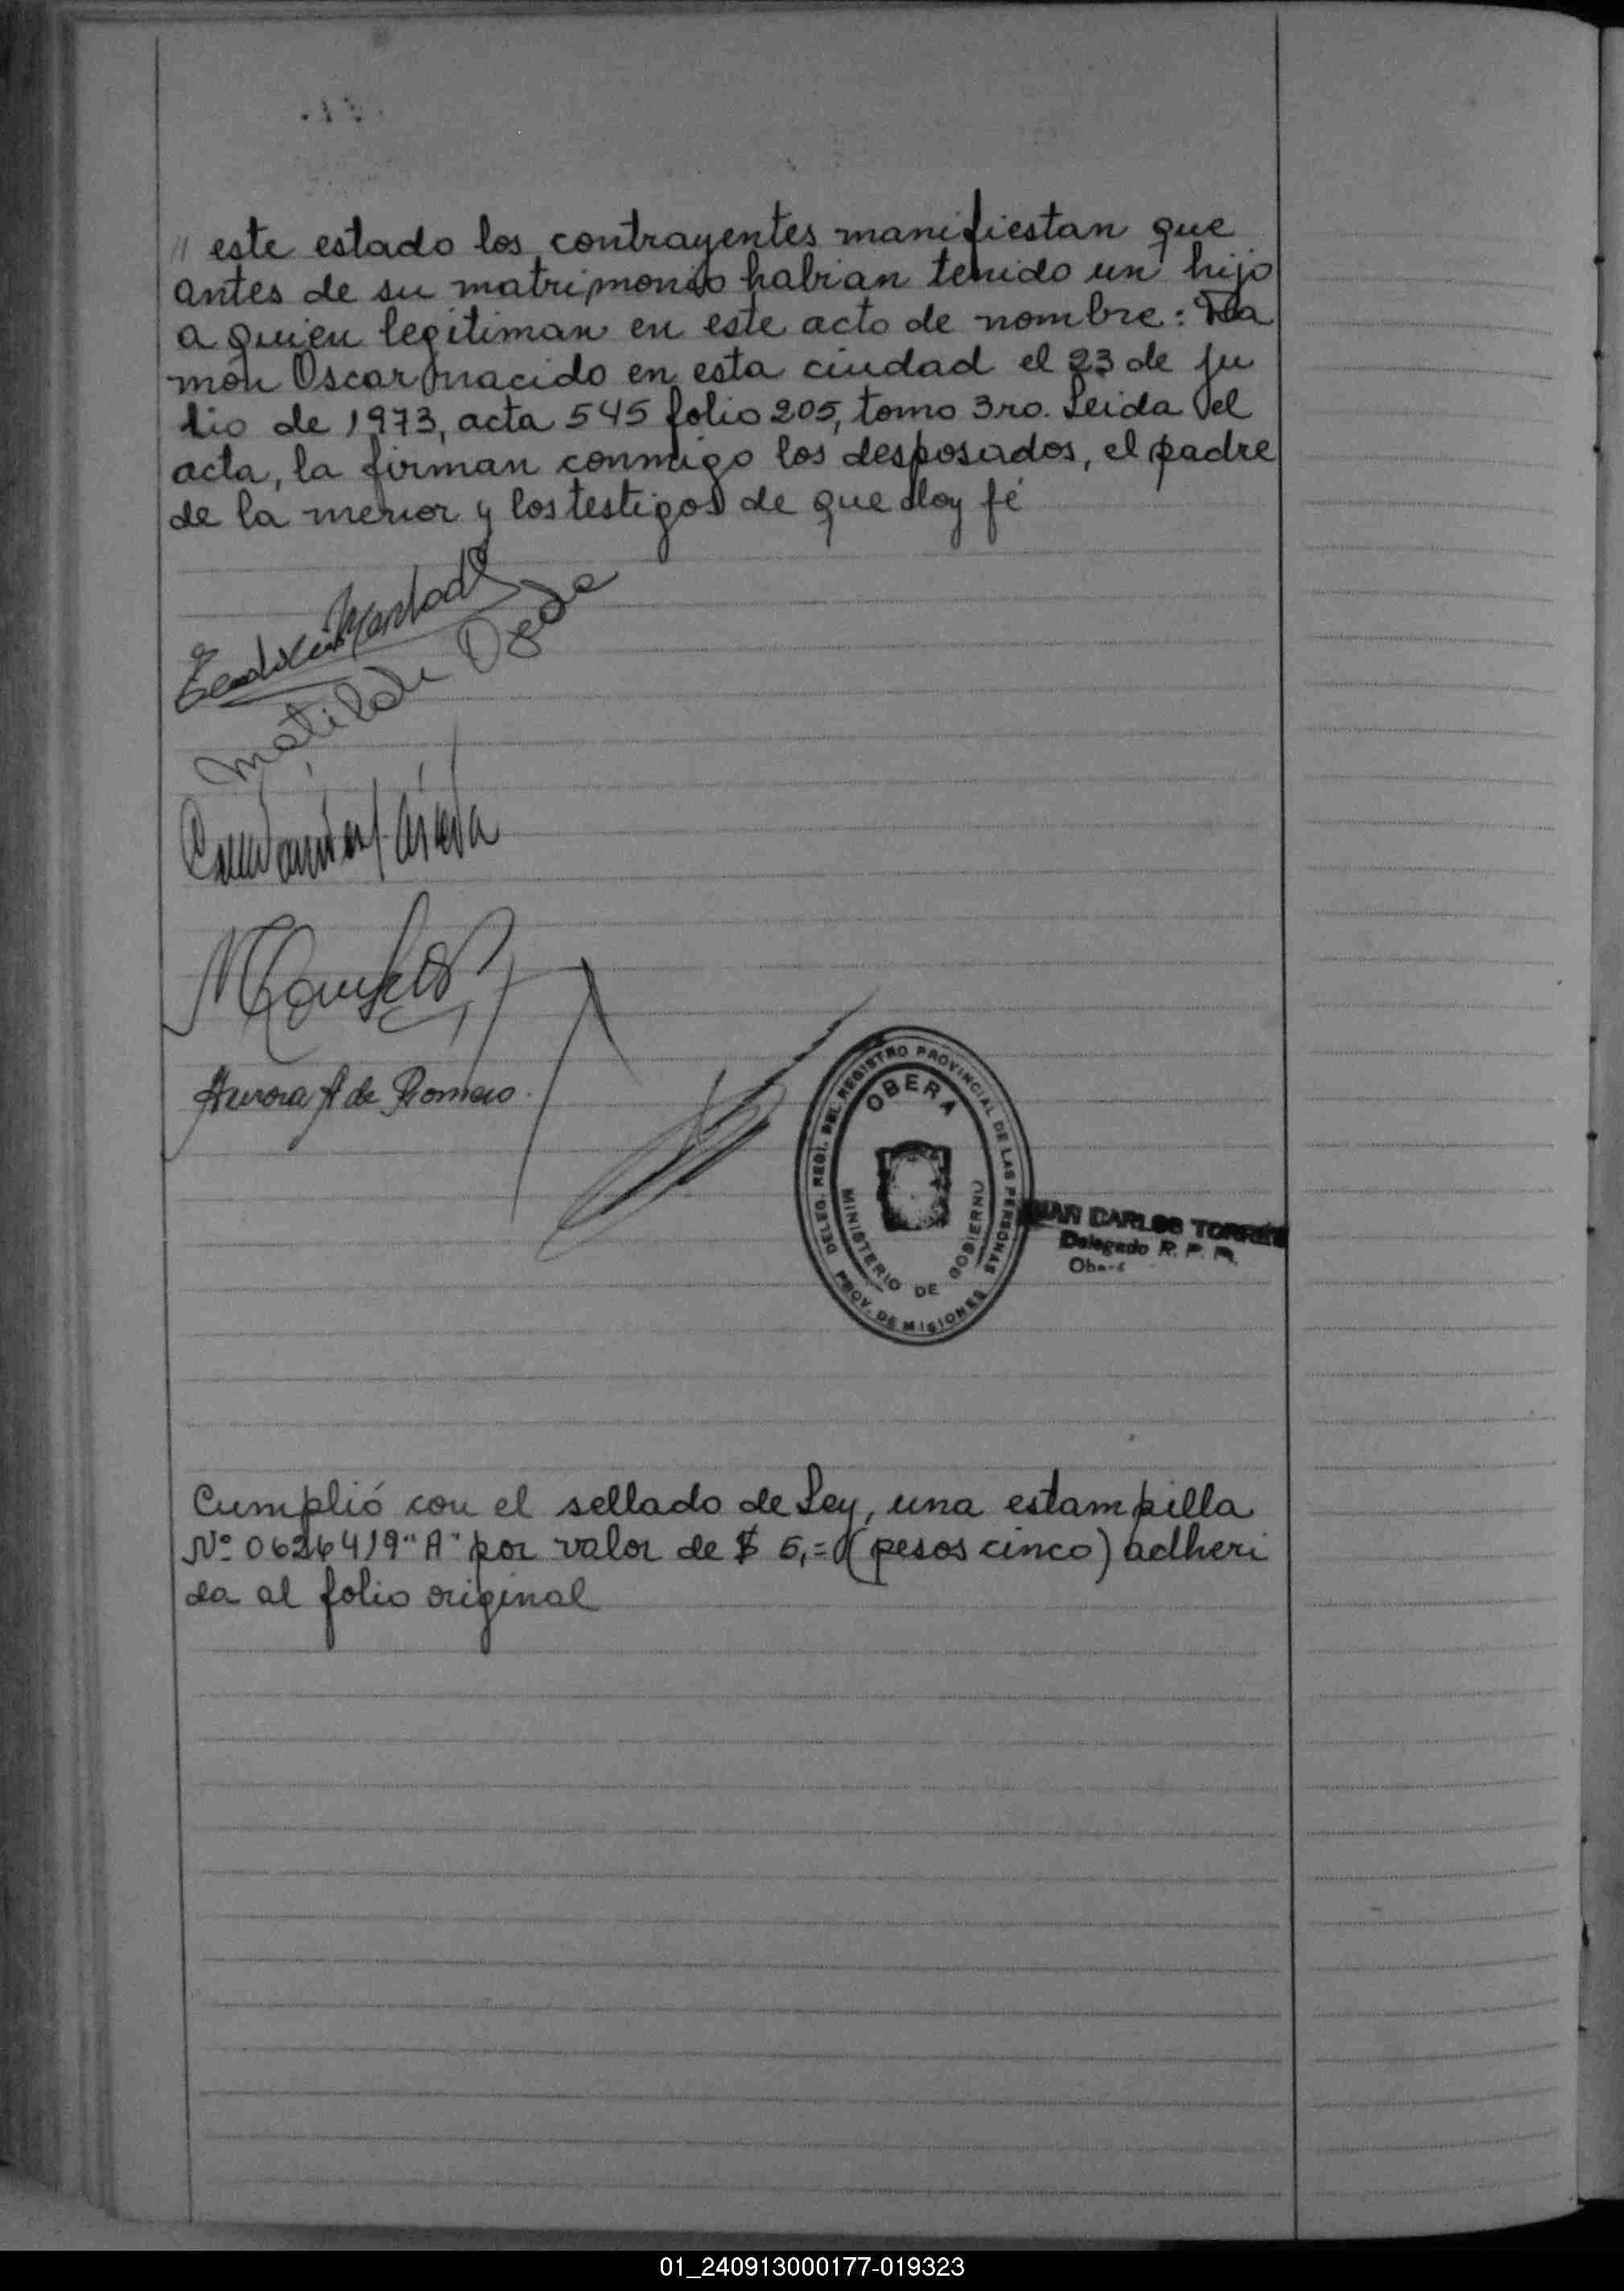 // este estado los contrayentes manifiestan que
antes de su matrimonio habian tenido un hijo
a quien legitiman en este acto de nombre: Ra
món Oscar nacido en esta ciudad el 23 de ju
lio de 1973, acta 545 folio 205, tomo 3ro. Leida el
acta, la firman conmigo los desposados, el padre
de la menor y los testigos de que doy fé
Matilde
Aurora A de Romero
DELEG. REGI. DEL REGISTRO PROVINCIAL DE LAS PERSONAS
OBERA
MINISTERIO DE GOBIERNO
PROV. DE MISIONES
JUAN CARLOS TORRES
Delegado R. P. P.
Oberá
Cumplió con el sellado de Ley, una estampilla
Nº 0626419 "A" por valor de $ 5,= (pesos cinco) adheri
da al folio original
01_240913000177-019323